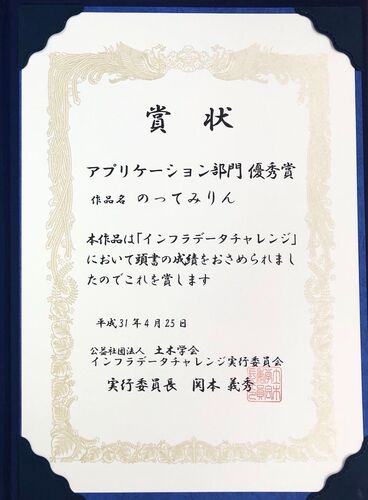 賞状
アプリケーション部門 優秀賞
作品名 のってみりん
本作品は「インフラデータチャレンジ」
において頭書の成績をおさめられまし
たのでこれを賞します
平成31年4月25日
公益社団法人 土木学会
インフラデータチャレンジ実行委員会
実行委員長 関本 義秀